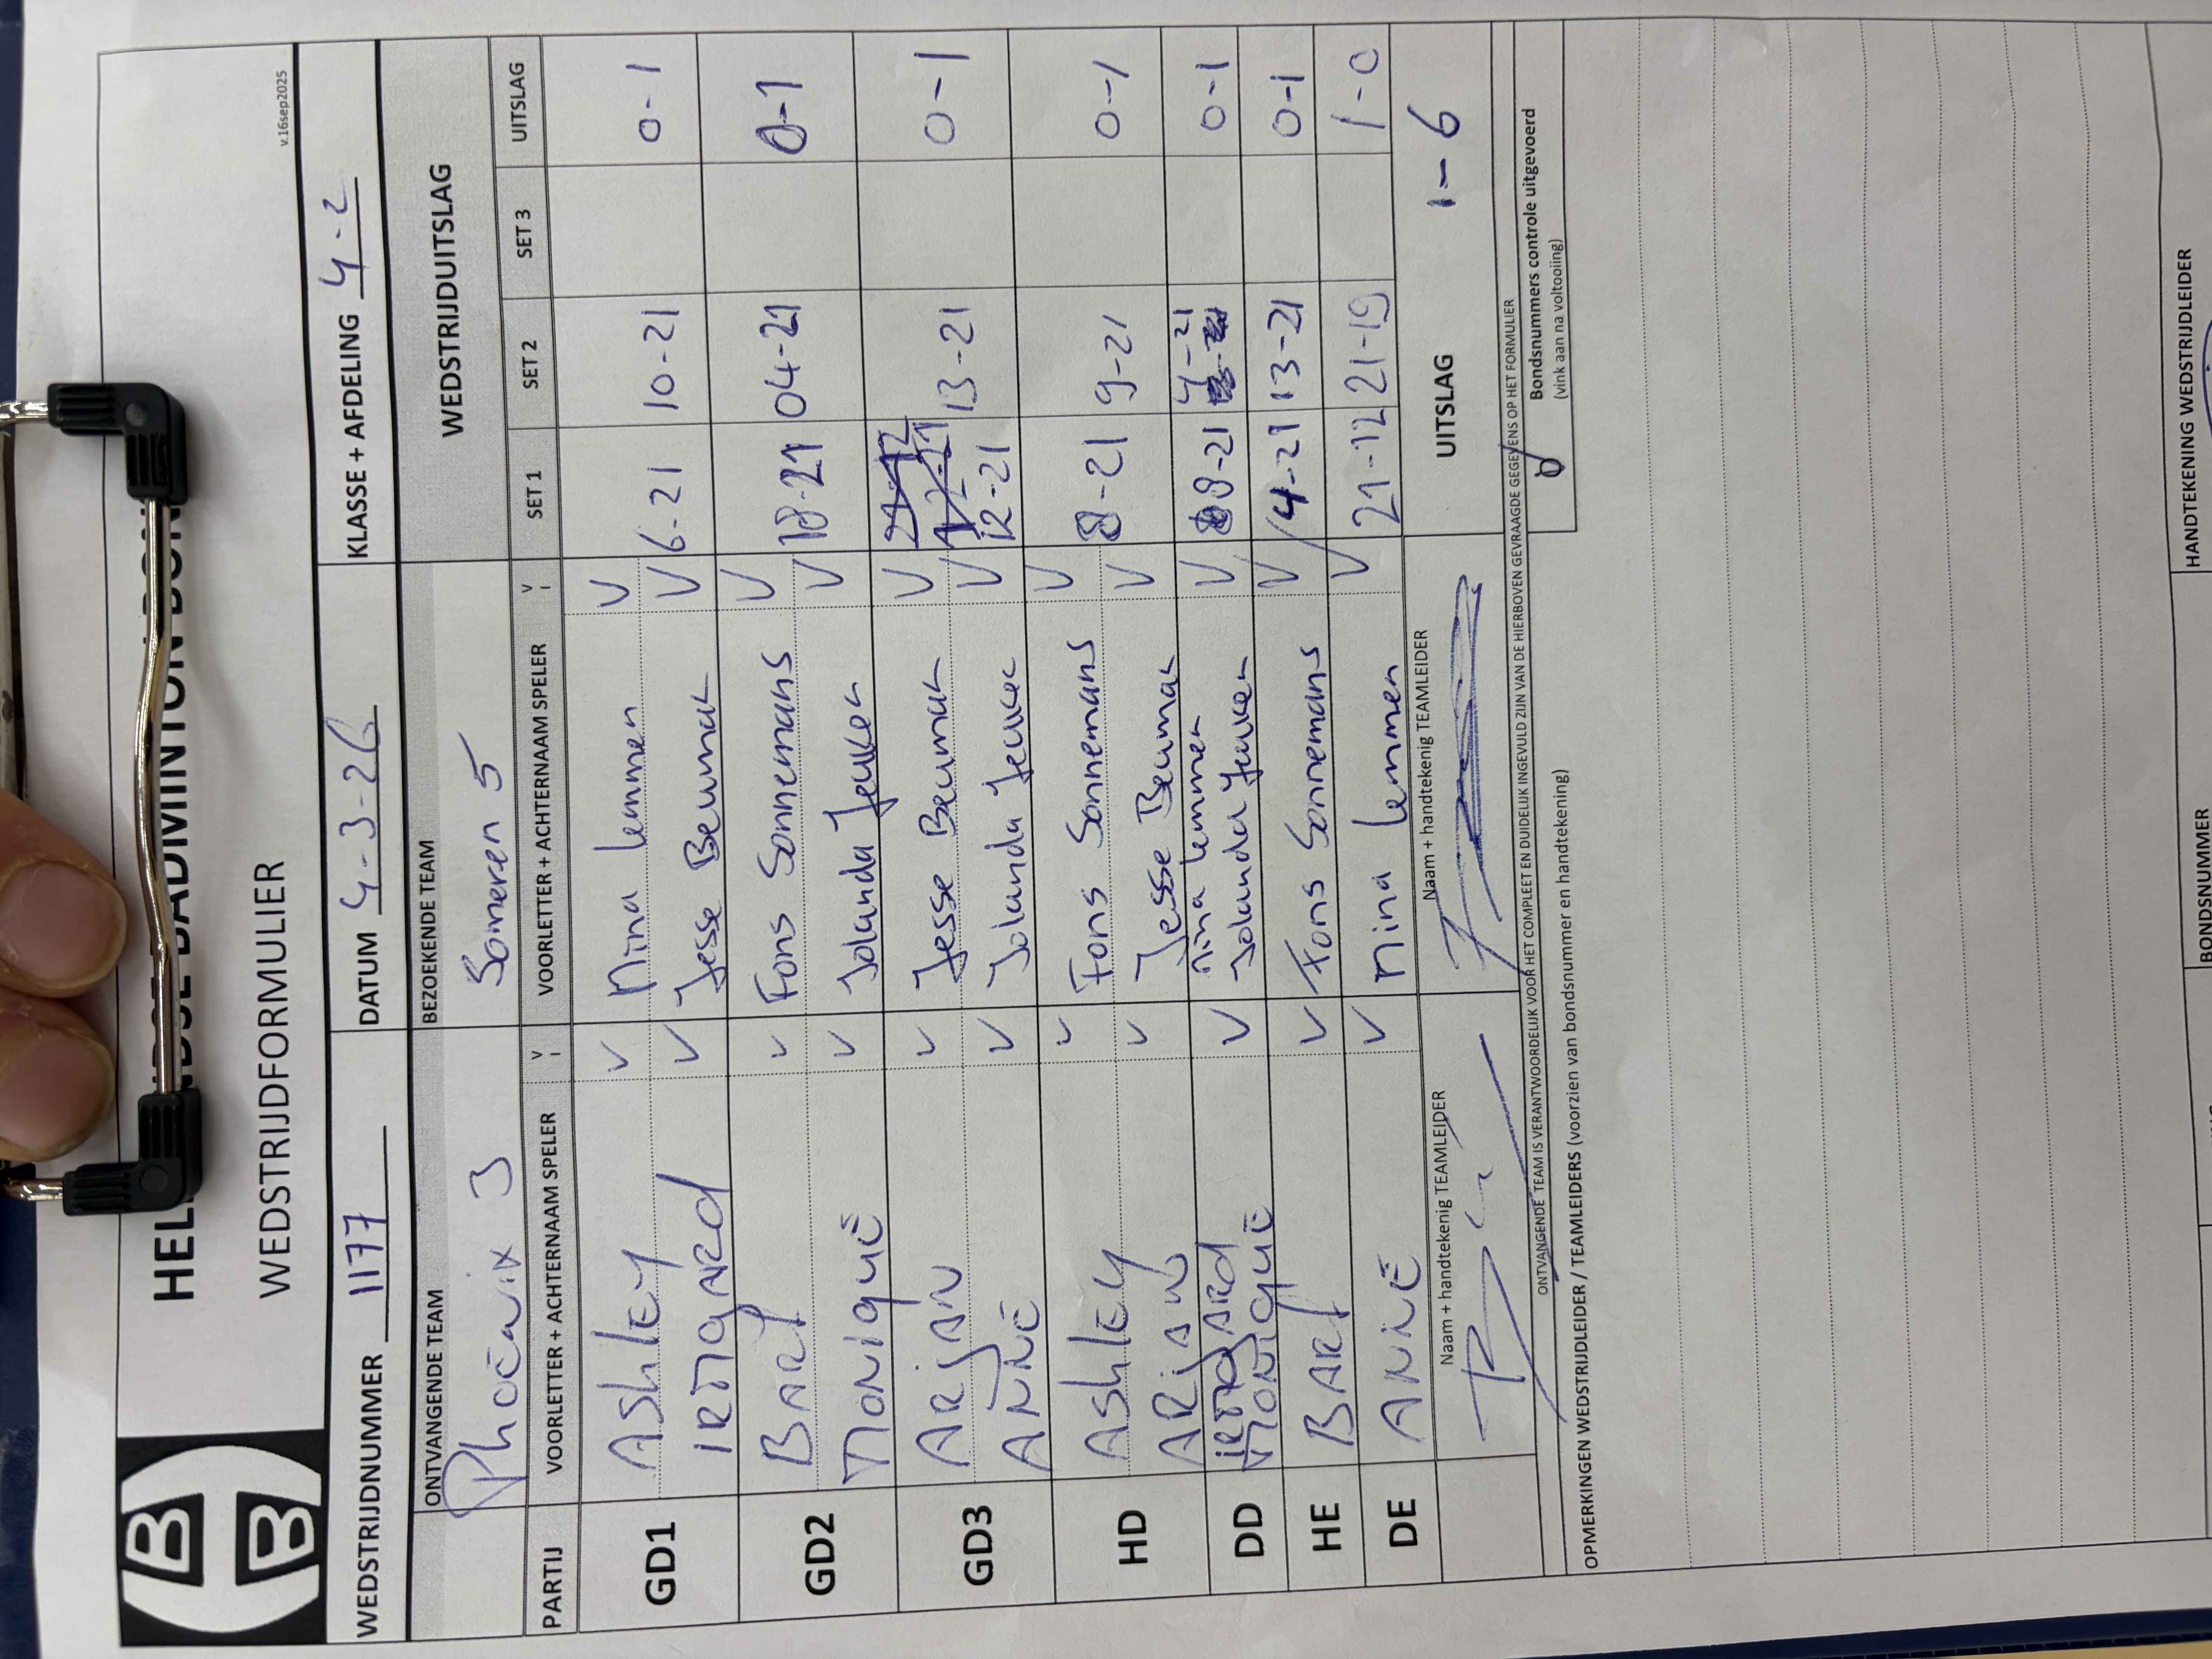 HEL NDSE BADMINTON BON
WEDSTRIJDFORMULIER
v.16sep2025
WEDSTRIJDNUMMER 1177 DATUM 4-3-26 KLASSE + AFDELING 4-2
ONTVANGENDE TEAM BEZOEKENDE TEAM WEDSTRIJDUITSLAG
Phoenix 3 Someren 5
PARTIJ VOORLETTER + ACHTERNAAM SPELER V VOORLETTER + ACHTERNAAM SPELER V SET 1 SET 2 SET 3 UITSLAG
GD1 Ashley V Nina Lemmen V 6-21 10-21 0-1
Irmgard V Jesse Beumak V
GD2 Bart V Fons Sonnemans V 18-21 04-21 0-1
Monique V Jolanda Jeuken V
GD3 Arjan V Jesse Beumak V 12-21 13-21 0-1
Anne V Jolanda Jeuken V
HD Ashley V Fons Sonnemans V 8-21 9-21 0-1
Arjan V Jesse Beumak V
DD Irmgard V Nina Lemmen V 8-21 4-21 0-1
Monique Jolanda Jeuken
HE Bart V Fons Sonnemans V 14-21 13-21 0-1
DE Anne V Nina Lemmen V 21-12 21-19 1-0
Naam + handtekenig TEAMLEIDER Naam + handtekenig TEAMLEIDER UITSLAG 1-6
ONTVANGENDE TEAM IS VERANTWOORDELIJK VOOR HET COMPLEET EN DUIDELIJK INGEVULD ZIJN VAN DE HIERBOVEN GEVRAAGDE GEGEVENS OP HET FORMULIER
Bondsnummers controle uitgevoerd
(vink aan na voltooiing)
OPMERKINGEN WEDSTRIJDLEIDER / TEAMLEIDERS (voorzien van bondsnummer en handtekening)
BONDSNUMMER HANDTEKENING WEDSTRIJDLEIDER